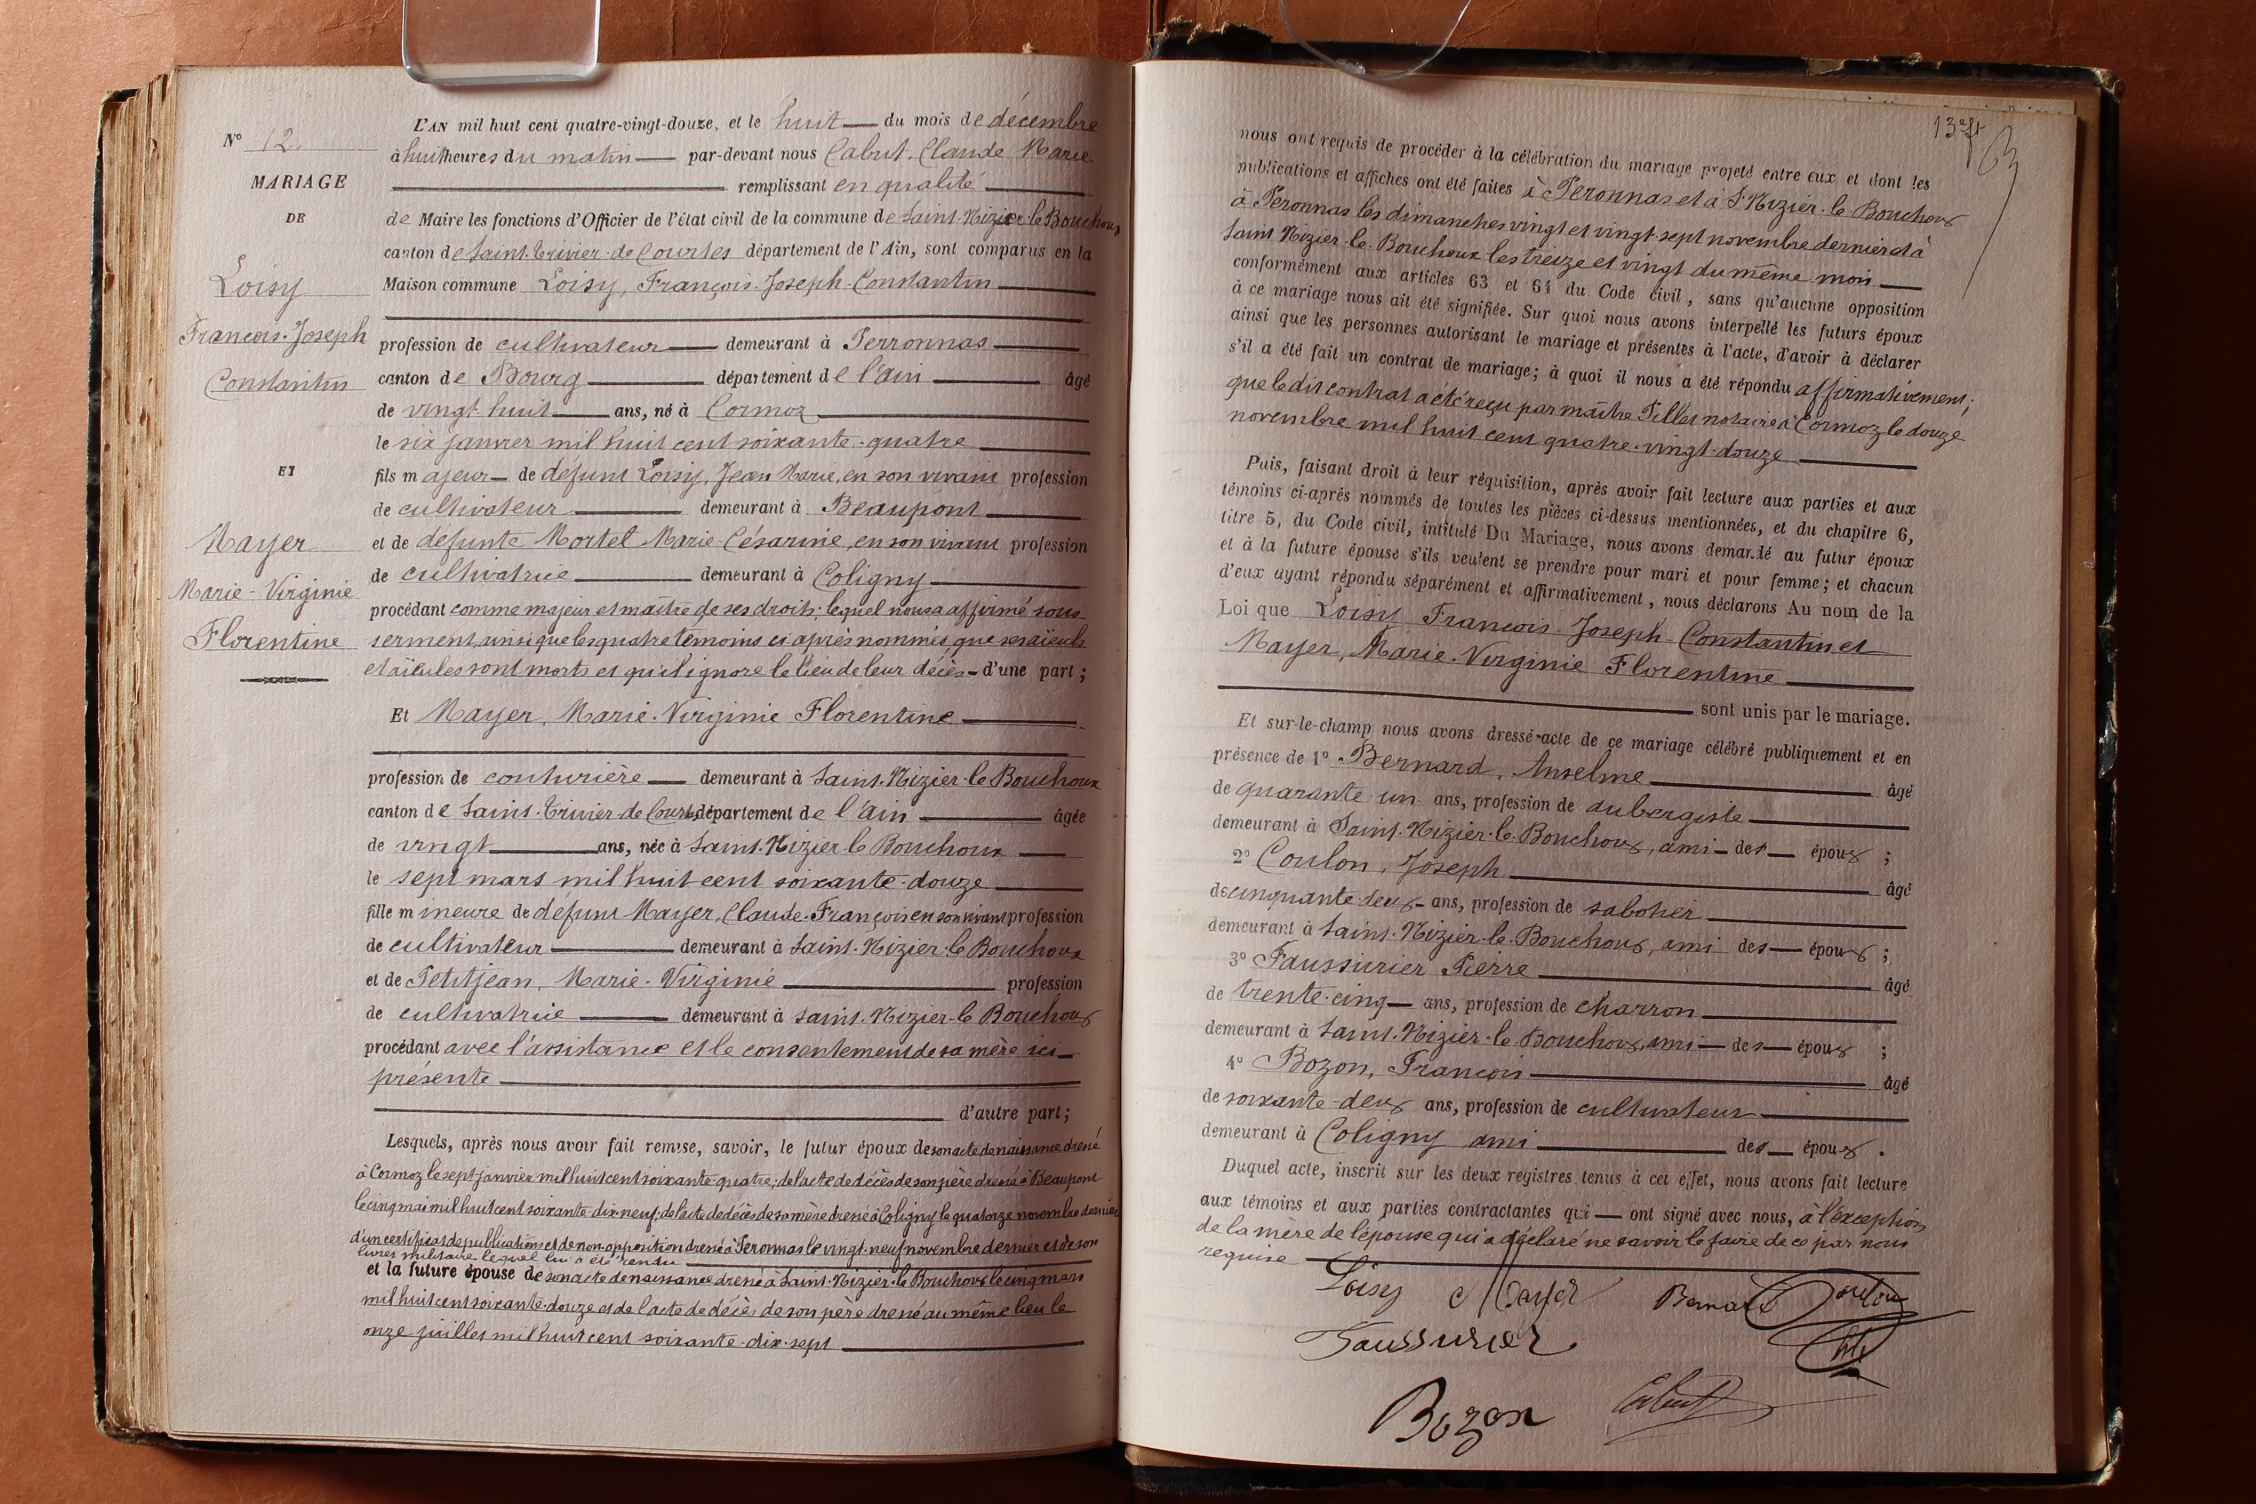 N° 12
MARIAGE
DE
Loisy
François-Joseph
Constantin
ET
Mayer
Marie-Virginie
Florentine
L'AN mil huit cent quatre-vingt-douze, et le huit du mois de décembre
à huit heures du matin par-devant nous Cabut, Claude Marie
remplissant en qualité
de Maire les fonctions d'Officier de l'état civil de la commune de Saint-Nizier-le-Bouchoux
canton de Saint-Trivier-de-Courtes département de l'Ain, sont comparus en la
Maison commune Loisy, François-Joseph-Constantin
profession de cultivateur demeurant à Perronnas
canton de Bourg département de l'ain âgé
de vingt-huit ans, né à Cormoz
le six janvier mil huit cent soixante-quatre
fils majeur de défunt Loisy, Jean Marie, en son vivant profession
de cultivateur demeurant à Beaupont
et de défunte Mortel Marie-Césarine, en son vivant profession
de cultivatrice demeurant à Coligny
procédant comme majeur et maître de ses droits; lequel nous a affirmé sous
serment, ainsi que les quatre témoins ci-après nommés, que ses aïeuls
et aïeules sont morts et qu'il ignore le lieu de leur décès d'une part;
Et Mayer, Marie-Virginie Florentine
profession de couturière demeurant à Saint-Nizier-le-Bouchoux
canton de Saint-Trivier-de-Courtes département de l'ain âgée
de vingt ans, née à Saint-Nizier-le Bouchoux
le sept mars mil huit cent soixante-douze
fille mineure de défunt Mayer, Claude-François en son vivant profession
de cultivateur demeurant à Saint-Nizier-le-Bouchoux
et de Petitjean, Marie-Virginie profession
de cultivatrice demeurant à Saint-Nizier-le Bouchoux
procédant avec l'assistance et le consentement de sa mère ici
présente
d'autre part;
Lesquels, après nous avoir fait remise, savoir, le futur époux de son acte de naissance dressé
à Cormoz le sept janvier mil huit cent soixante-quatre; de l'acte de décès de son père dressé à Beaupont
le cinq mai mil huit cent soixante-dix-neuf; de l'acte de décès de sa mère dressé à Coligny le quatorze novembre dernier
d'un certificat de publications et de non-opposition dressé à Peronnas le vingt-neuf novembre dernier et de son
livret militaire lequel lui a été rendu
et la future épouse de son acte de naissance dressé à Saint-Nizier-le-Bouchoux le cinq mars
mil huit cent soixante-douze et de l'acte de décès de son père dressé au même lieu le
onze juillet mil huit cent soixante-dix-sept
nous ont requis de procéder à la célébration du mariage projeté entre eux et dont les
publications et affiches ont été faites à Peronnas et à St Nizier-le-Bouchoux
à Peronnas les dimanches vingt et vingt-sept novembre dernier et à
Saint Nizier-le-Bouchoux les treize et vingt du même mois
conformément aux articles 63 et 64 du Code civil, sans qu'aucune opposition
à ce mariage nous ait été signifiée. Sur quoi nous avons interpellé les futurs époux
ainsi que les personnes autorisant le mariage et présentes à l'acte, d'avoir à déclarer
s'il a été fait un contrat de mariage; à quoi il nous a été répondu affirmativement;
que le dit contrat a été reçu par maître Pillet notaire à Cormoz le douze
novembre mil huit cent quatre-vingt-douze
Puis, faisant droit à leur réquisition, après avoir fait lecture aux parties et aux
témoins ci-après nommés de toutes les pièces ci-dessus mentionnées, et du chapitre 6,
titre 5, du Code civil, intitulé Du Mariage, nous avons demandé au futur époux
et à la future épouse s'ils veulent se prendre pour mari et pour femme; et chacun
d'eux ayant répondu séparément et affirmativement, nous déclarons Au nom de la
Loi que Loisy François-Joseph-Constantin et
Mayer, Marie-Virginie Florentine
sont unis par le mariage.
Et sur-le-champ nous avons dressé acte de ce mariage célébré publiquement et en
présence de 1° Bernard, Anselme âgé
de quarante un ans, profession de aubergiste
demeurant à Saint-Nizier-le-Bouchoux, ami des époux;
2° Coulon, Joseph âgé
de cinquante-deux ans, profession de sabotier
demeurant à Saint-Nizier-le-Bouchoux, ami des époux;
3° Faussurier Pierre âgé
de trente-cinq ans, profession de charron
demeurant à Saint-Nizier-le Bouchoux, ami des époux;
4° Bozon, François âgé
de soixante-deux ans, profession de cultivateur
demeurant à Coligny ami des époux.
Duquel acte, inscrit sur les deux registres tenus à cet effet, nous avons fait lecture
aux témoins et aux parties contractantes qui ont signé avec nous, à l'exception
de la mère de l'épouse qui a déclaré ne savoir le faire de ce par nous
requise
Loisy Mayer Bernard Coulon
Faussurier
Bozon Cabut